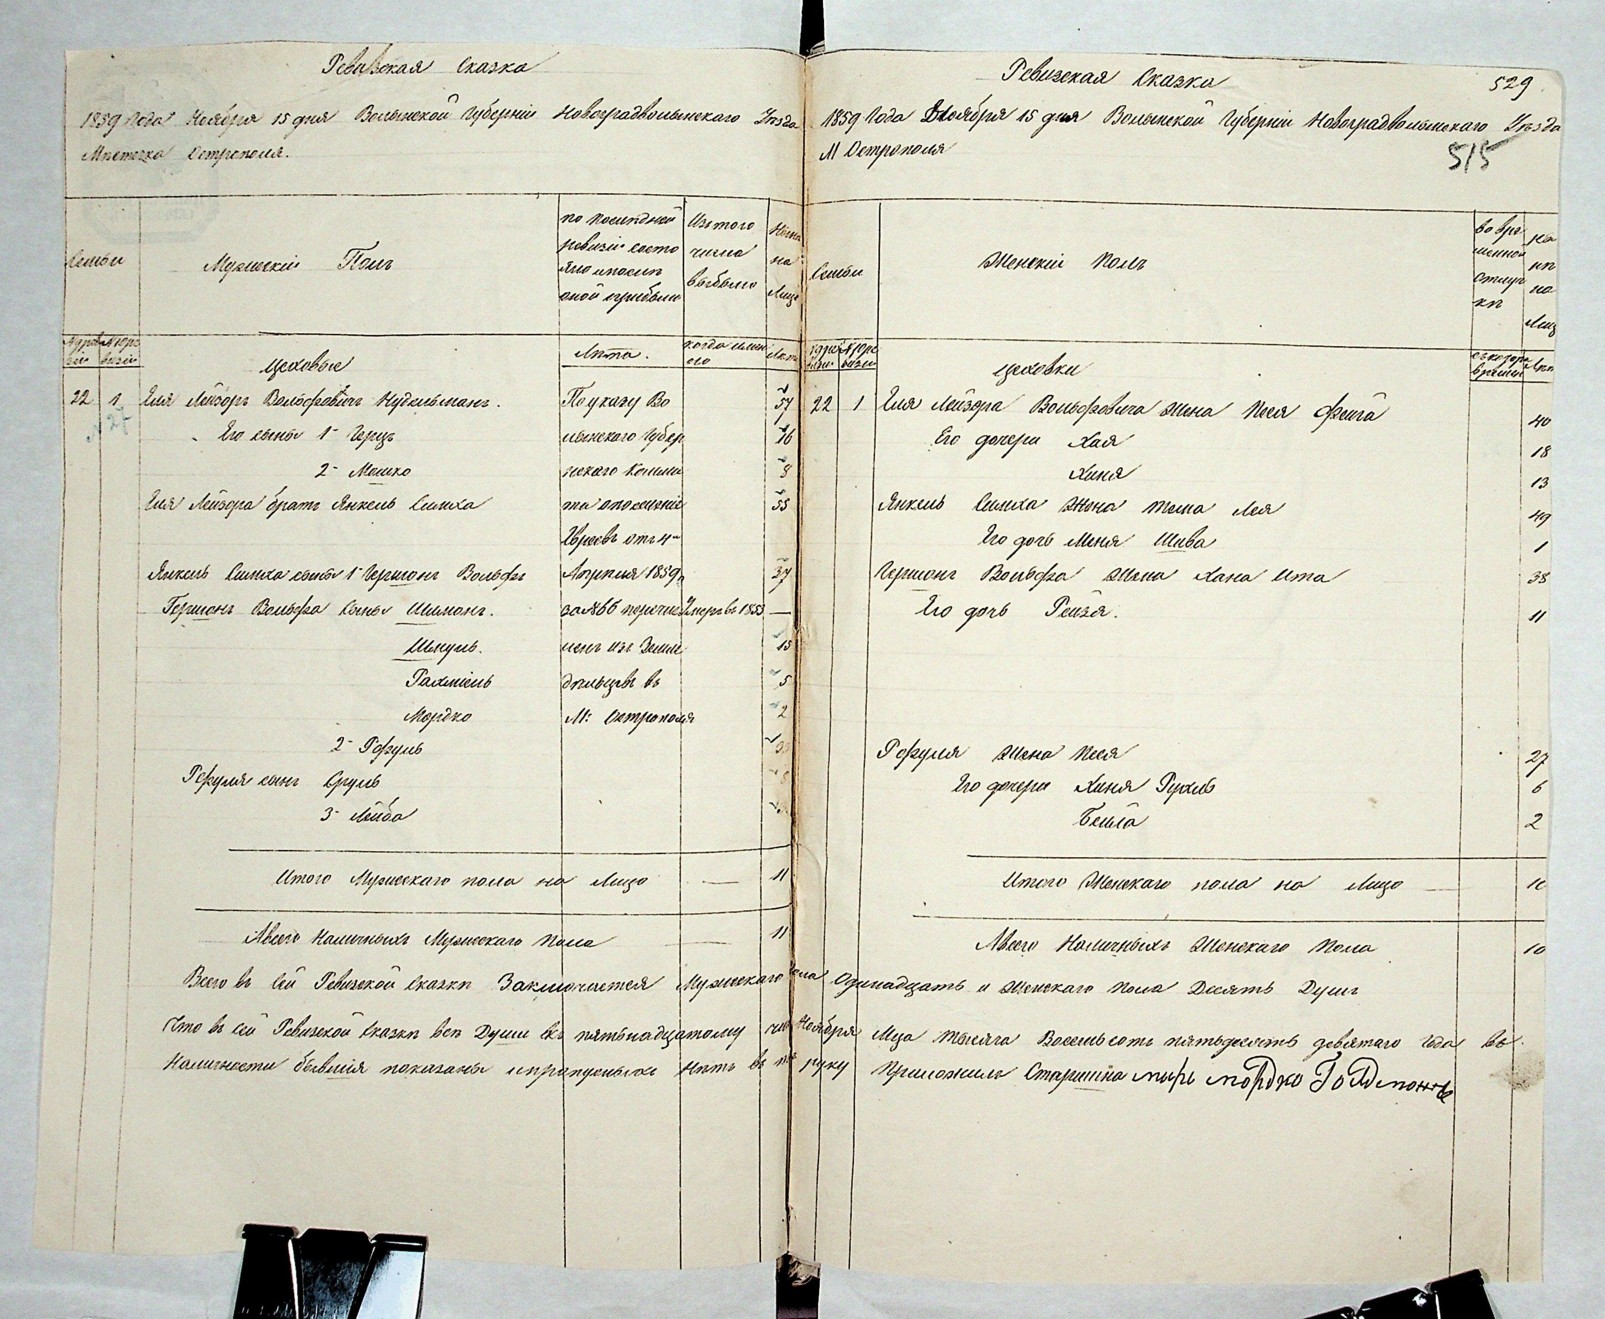 Ревизская Сказка
1859 Года Ноября 15 дня Волынской Губерніи Новоградволынскаго Уѣзда
Мѣстечка Острополя.
Семьи
Мужескій Полъ
по послѣдней ревизіи состояло и послѣ оной прибыло
Изъ того числа выбыло
Нынѣ на Лицо
Цеховые
Лѣта.
когда именно
Лѣта
22 1 Еля Лейзоръ Вольфовичъ Нудельманъ. По указу Во 57
Его сыны 1й Герцъ лынскаго Губер 16
2й Мошко нскаго Комми 8
Еля Лейзора братъ Янкель Симха та о поселеніи 55
Евреевъ отъ 4го
Янкель Симха сыны 1й Гершонъ Вольфъ Апрѣля 1859г. 37
Гершонъ Вольфа сыны Шимонъ. за №66 перечис Умеръ въ 1853 —
Шмуль. ленъ изъ Земле 15
Рахміель дѣльцевъ въ 5
Мордко М: Острополя 2
2й Рефуль
Рефуля сынъ Сруль
3й Лейба
Итого Мужескаго пола на Лицо — 11
А всего Наличныхъ Мужескаго Пола — 11
Ревизская Сказка
529.
1859 Года Ноября 15 дня Волынской Губерніи Новоградволынскаго Уѣзда
М Острополя
515
Семьи
Женскій Полъ
во временной отлучкѣ
на Лиц
Цеховки
съ котора времени
Лѣт
22 1 Еля Лейзора Вольфовича Жена Песя Фейга 40
Его дочери Хая 18
Хиня 13
Янкель Симха Жена Тема Лея 49
Его дочь Меня Шива 1
Гершонъ Вольфа Жена Хана Ита 38
Его дочь Рейзя. 11
Рефуля Жена Песя 27
Его дочери Хиня Рухль 6
Бейла 2
Итого Женскаго пола на Лицо 10
А всего Наличныхъ Женскаго Пола 10
Всего въ Сей Ревизской Сказкѣ Заключается Мужескаго пола Одинадцать и Женскаго Пола Десять Душъ
Что въ сей Ревизской Сказкѣ всѣ Души къ пятьнадцатому чис Ноября Мца Тысяча Восемьсотъ пятьдесятъ девятаго Года въ
Наличности бывшія показаны и пропущеныхъ Нѣтъ въ томъ руку Приложилъ Старшина Меръ Мордко Голдманъ